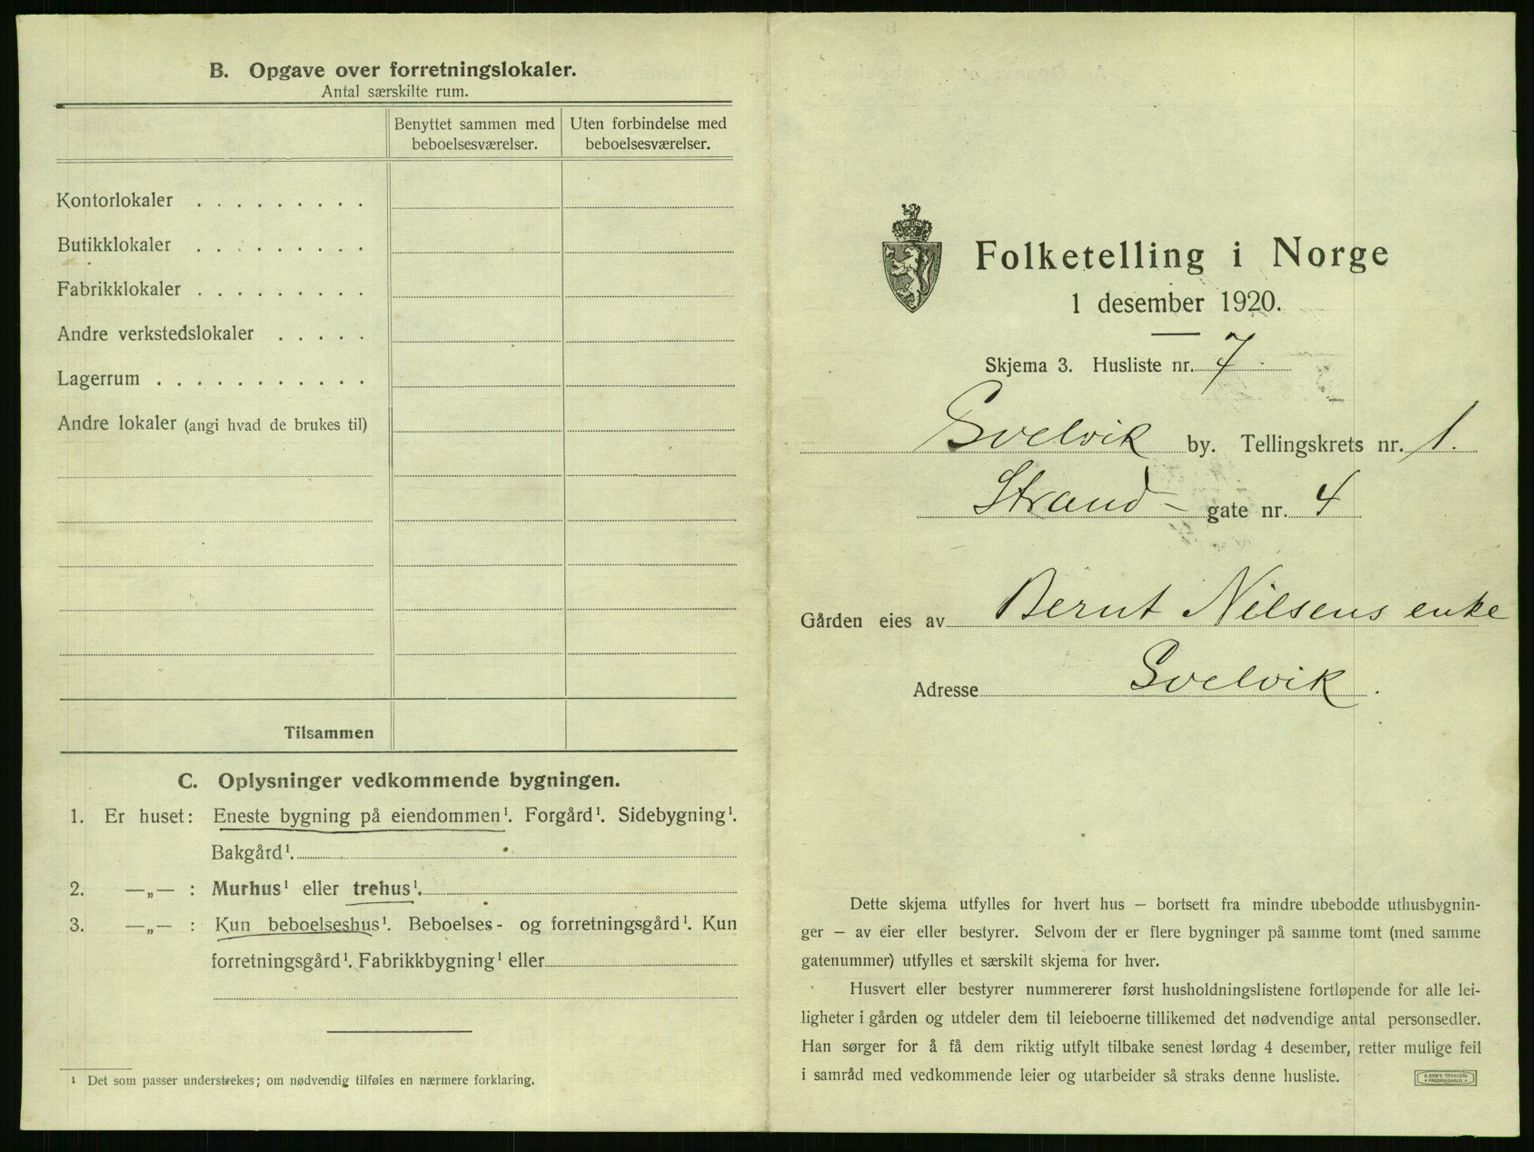 B. Opgave over forretningslokaler.
Antal særskilte rum.
Benyttet sammen med beboelsesværelser.
Uten forbindelse med beboelsesværelser.
Kontorlokaler . . . . . . . . .
Butikklokaler . . . . . . . . .
Fabrikklokaler . . . . . . . . .
Andre verkstedslokaler . . . . .
Lagerrum . . . . . . . . . . .
Andre lokaler (angi hvad de brukes til)
Tilsammen
C. Oplysninger vedkommende bygningen.
1. Er huset: Eneste bygning på eiendommen¹. Forgård¹. Sidebygning¹.
Bakgård¹.
2. —„— : Murhus¹ eller trehus¹.
3. —„— : Kun beboelseshus¹. Beboelses- og forretningsgård¹. Kun
forretningsgård¹. Fabrikkbygning¹ eller
¹ Det som passer understrekes; om nødvendig tilføies en nærmere forklaring.
Folketelling i Norge
1 desember 1920.
Skjema 3. Husliste nr. 7.
Svelvik by. Tellingskrets nr. 1.
Strand- gate nr. 4
Gården eies av Bernt Nilsens enke
Adresse Svelvik.
Dette skjema utfylles for hvert hus – bortsett fra mindre ubebodde uthusbygnin-
ger – av eier eller bestyrer. Selvom der er flere bygninger på samme tomt (med samme
gatenummer) utfylles et særskilt skjema for hver.
Husvert eller bestyrer nummererer først husholdningslistene fortløpende for alle lei-
ligheter i gården og utdeler dem til leieboerne tillikemed det nødvendige antal personsedler.
Han sørger for å få dem riktig utfylt tilbake senest lørdag 4 desember, retter mulige feil
i samråd med vedkommende leier og utarbeider så straks denne husliste.